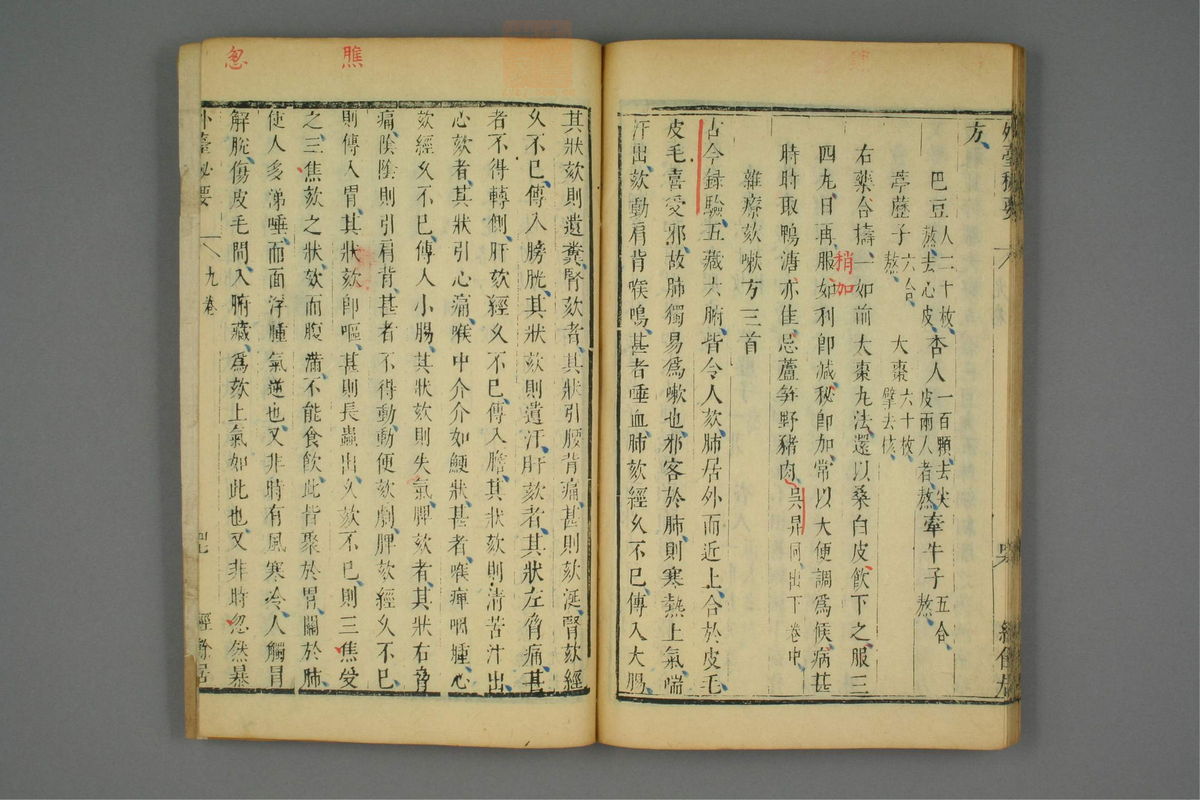 方
巴豆人二十枚熬去心皮杏人一百顆去尖皮兩人者熬牽牛子五合熬
葶藶子六合熬大棗六十枚擘去核
右藥合擣一如前大棗丸法還以桑白皮飲下之服三
四丸日再服如利即減秘即加常以大便調為候病甚
稍加
時時取鴨溏亦佳忌蘆笋野豬肉吳昇同出下卷中
雜療欬嗽方三首
古今録驗五藏六腑皆令人欬肺居外而近上合於皮毛
皮毛喜受邪故肺獨易為嗽也邪客於肺則寒熱上氣喘
汗出欬動肩背喉鳴甚者唾血肺欬經久不已傳入大腸
其狀欬則遺糞腎欬者其狀引腰背痛甚則欬涎腎欬經
久不已傳入膀胱其狀欬則遺汗肝欬者其狀左脅痛甚
者不得轉側肝欬經久不已傳入膽其狀欬則清苦汁出
心欬者其狀引心痛喉中介介如鯁狀甚者喉痺咽腫心
欬經久不已傳人小腸其狀欬則失氣脾欬者其狀右脅
痛陰陰則引肩背甚者不得動動便欬劇脾欬經久不已
則傳人胃其狀欬即嘔甚則長蟲出久欬不已則三焦受
膲
之三焦欬之狀欬而腹滿不能食飲此皆聚於胃關於肺
使人多涕唾而面浮腫氣逆也又非時有風寒冷人觸冒
解脫傷皮毛間入腑藏為欬上氣如此也又非時忽然暴
怱
外臺秘要 九卷 經餘居